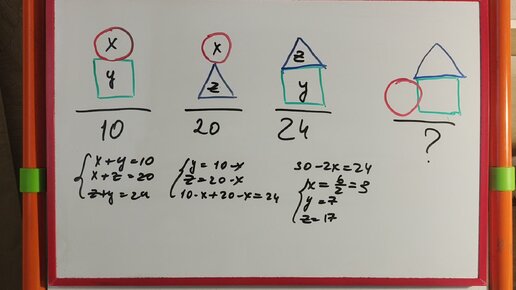 x
y
10
x
z
20
z
y
24
?
x+y=10
x+z=20
z+y=24
y=10-x
z=20-x
10-x+20-x=24
30-2x=24
x=6/2=3
y=7
z=17